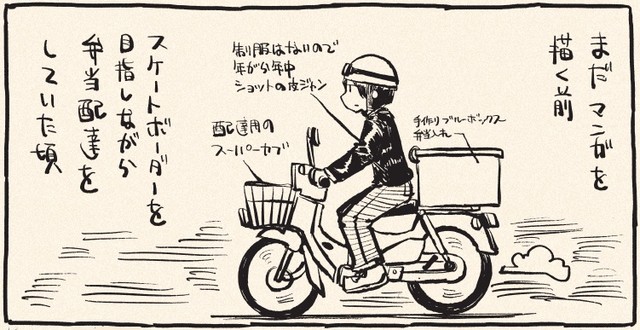 まだマンガを
描く前
手作りブルーボックス
弁当入れ
制服はないので
年がら年中
ショットの皮ジャン
配達用の
スーパーカブ
スケートボーダーを
目指しながら
弁当配達を
していた頃